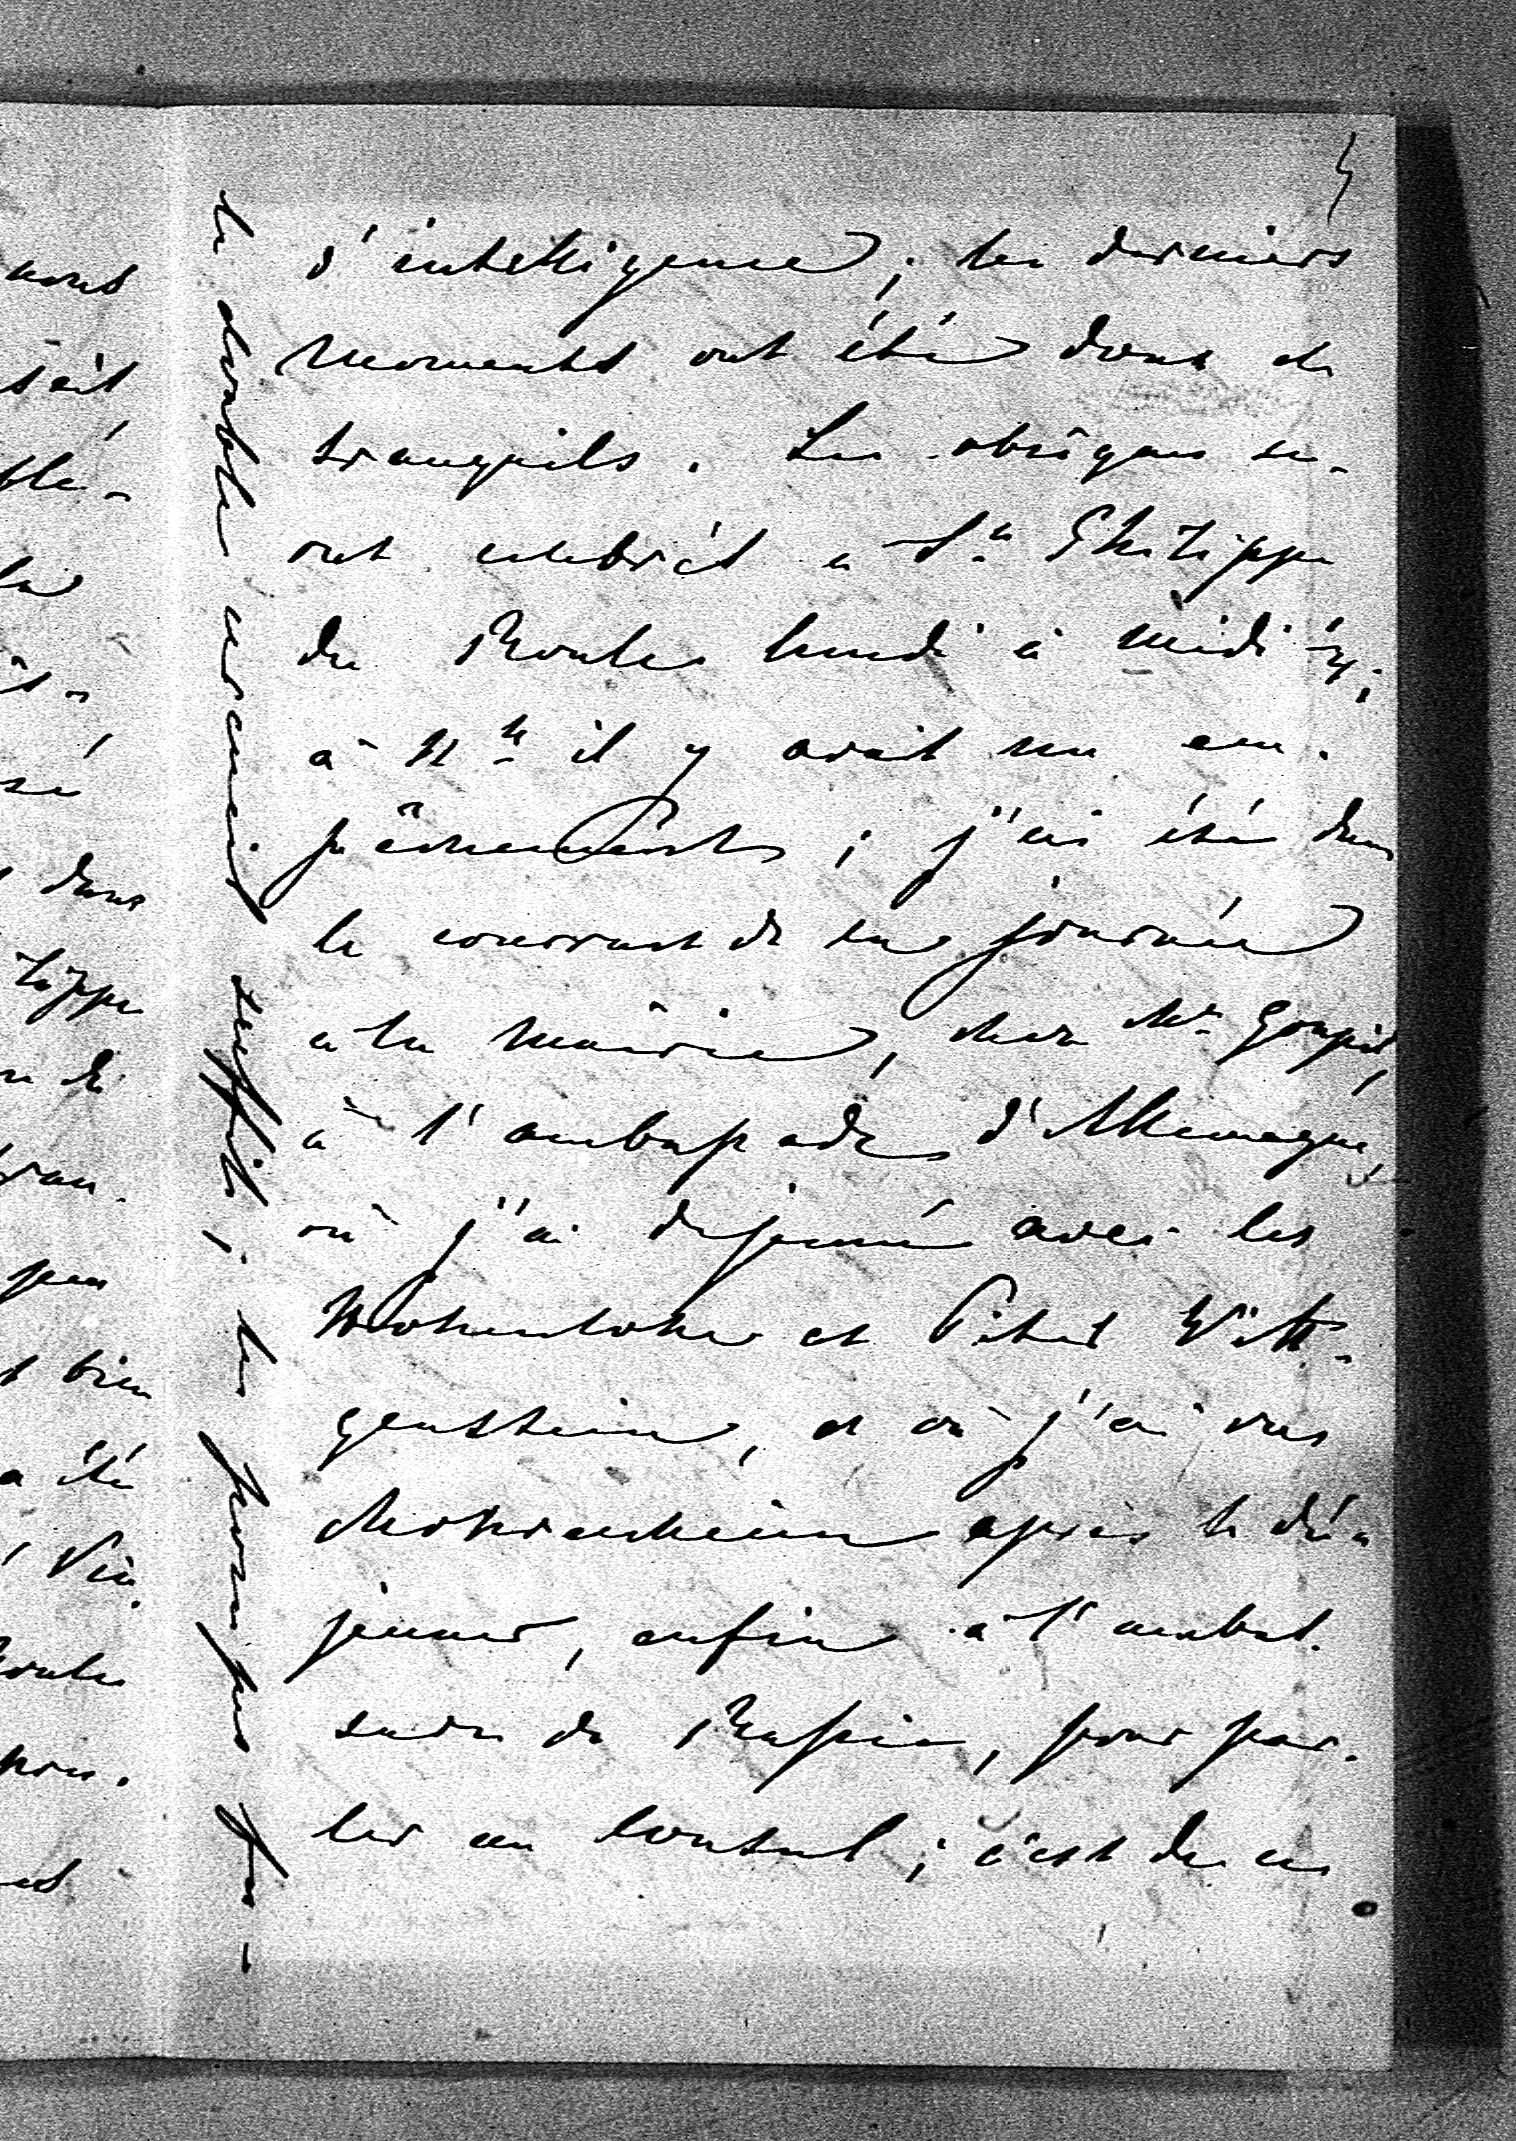 d'intelligence; les derniers
moments ont été doux et
tranquils. Les obsèques se-
ront celebrés a St Philippe
du Roule lundi à midi ½;
à 11h il y avait un em-
pêchement; j'ai été dans
le courrant de la journée
a la mairie, chez Mr Goupil,
à l'ambassade d'Allemagne,
où j'ai dejeuné avec les
Hohenlohe et Peter Witt-
genstein, et où j'ai vu
Mohrenheim après le dé-
jeuner, enfin à l'ambas-
sade de Russie, pour par-
ler au Consul; c'est de ce
le double cercueil suffit; les pompes fu-
nous
sait
dans
lippe
peu
bien
a été
Roule